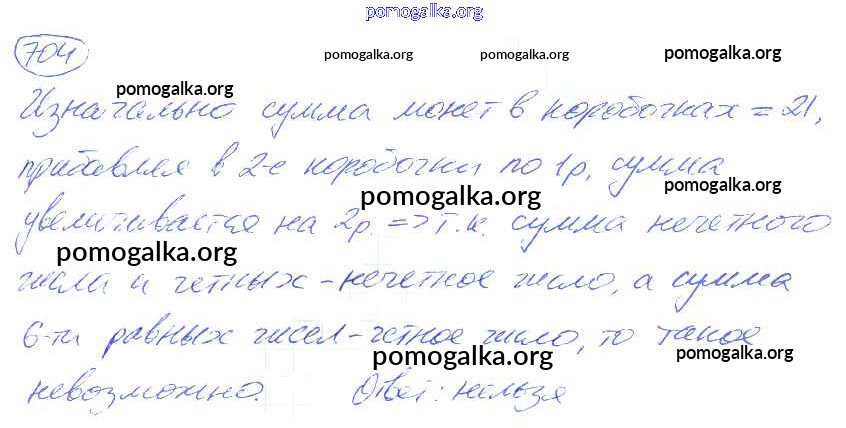 pomogalka.org
704
pomogalka.org pomogalka.org pomogalka.org
pomogalka.org
Изначально сумма монет в коробочках = 21,
прибавляя в 2-е коробочки по 1р, сумма
pomogalka.org
pomogalka.org
увеличивается на 2р. => т.к. сумма нечетного
pomogalka.org
числа и четных - нечетное число, а сумма
6-ти равных чисел - четное число, то такое
pomogalka.org
pomogalka.org
невозможно. Ответ: нельзя